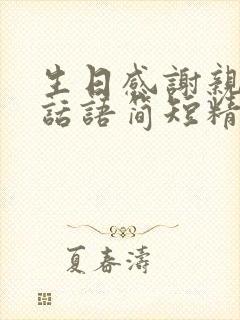 生日感謝親
話語简短精
夏春濤